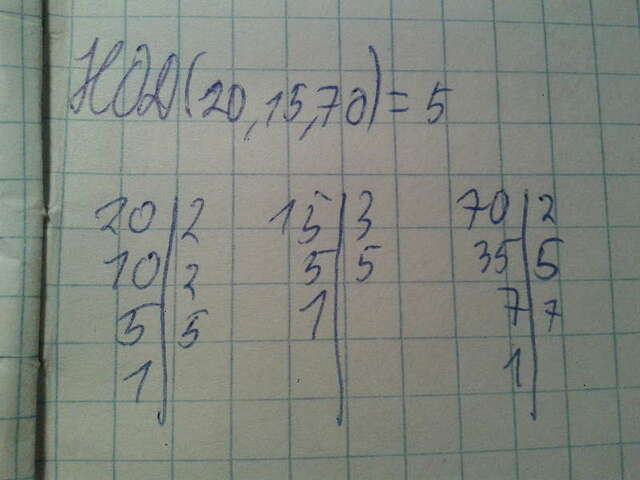 НОД(20,15,70)=5
20|2 15|3 70|2
10|2 5|5 35|5
5|5 1| 7|7
1| 1|